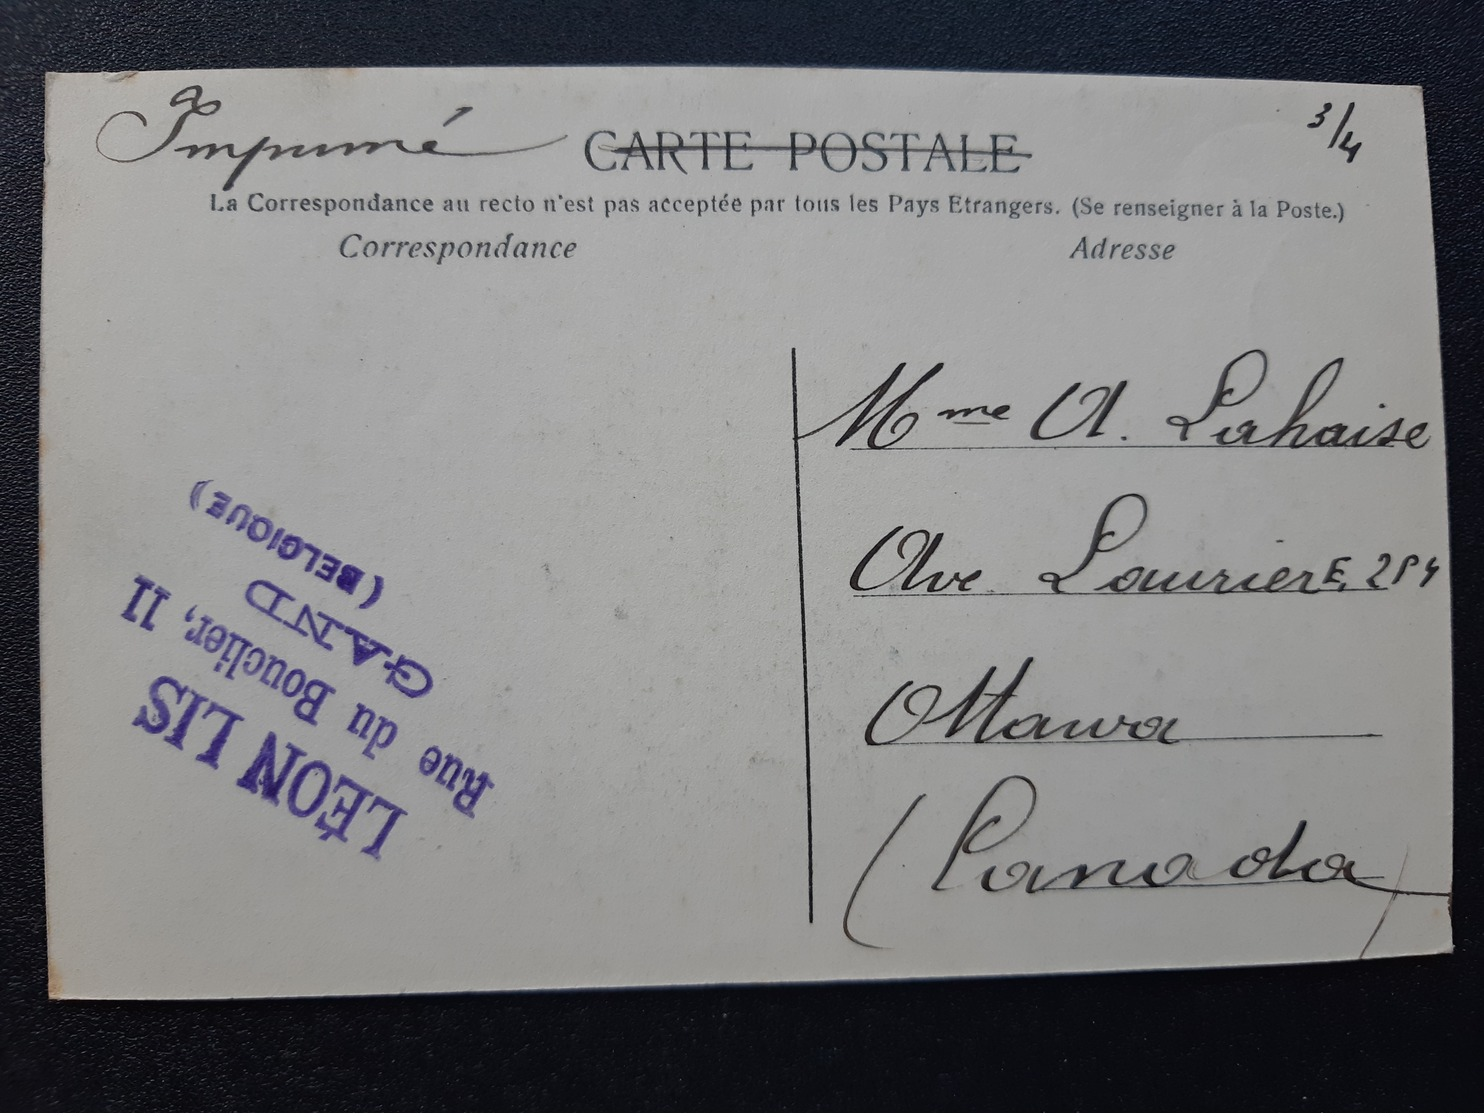 Imprimé
CARTE POSTALE
3/4
La Correspondance au recto n'est pas acceptée par tous les Pays Etrangers. (Se renseigner à la Poste.)
Correspondance
Adresse
Mme A. Lahaise
Ave Laurier E, 284
Ottawa
(Canada)
LÉON LIS
Rue du Bouclier, 11
GAND
(BELGIQUE)